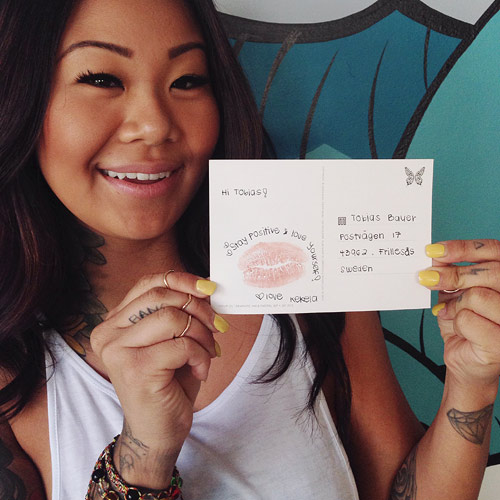 Hi Tobias!
Stay positive & love yourself!
love Kekela
Tobias Bauer
Postvägen 17
43962, Frillesås
Sweden